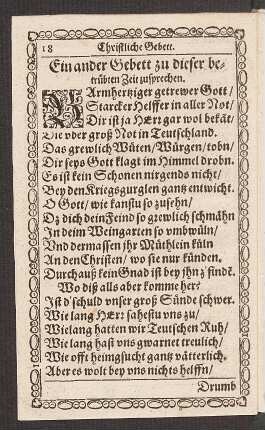 18 Christliche Gebett.
Ein ander Gebett zu dieser be-
trübten Zeit zusprechen.
BArmhertziger getrewer Gott/
Starcker Helffer in aller Not/
Dir ist ja HErr gar wol bekāt/
Die vber groß Not in Teutschland.
Das grewlich Wüten/ Würgen/ tobn/
Dir seys Gott klagt im Himmel drobn.
Es ist kein Schonen nirgends nicht/
Bey den Kriegsgurglen gantz entwicht.
O Gott/ wie kanstu so zusehn/
Dz dich dein Feind so grewlich schmähn
In deim Weingarten so vmbwüln/
Vnd dermassen jhr Müthlein küln
An den Christen/ wo sie nur künden.
Durchauß kein Gnad ist bey jhn z' findē.
Wo diß alls aber komme her?
Ist d'schuld vnser groß Sünde schwer.
Wie lang HErr sahestu vns zu/
Wie lang hatten wir Teutschen Ruh/
Wie lang hast vns gwarnet treulich/
Wie offt heimgsucht gantz vätterlich.
Aber es wolt bey vns nichts helffn/
Drumb